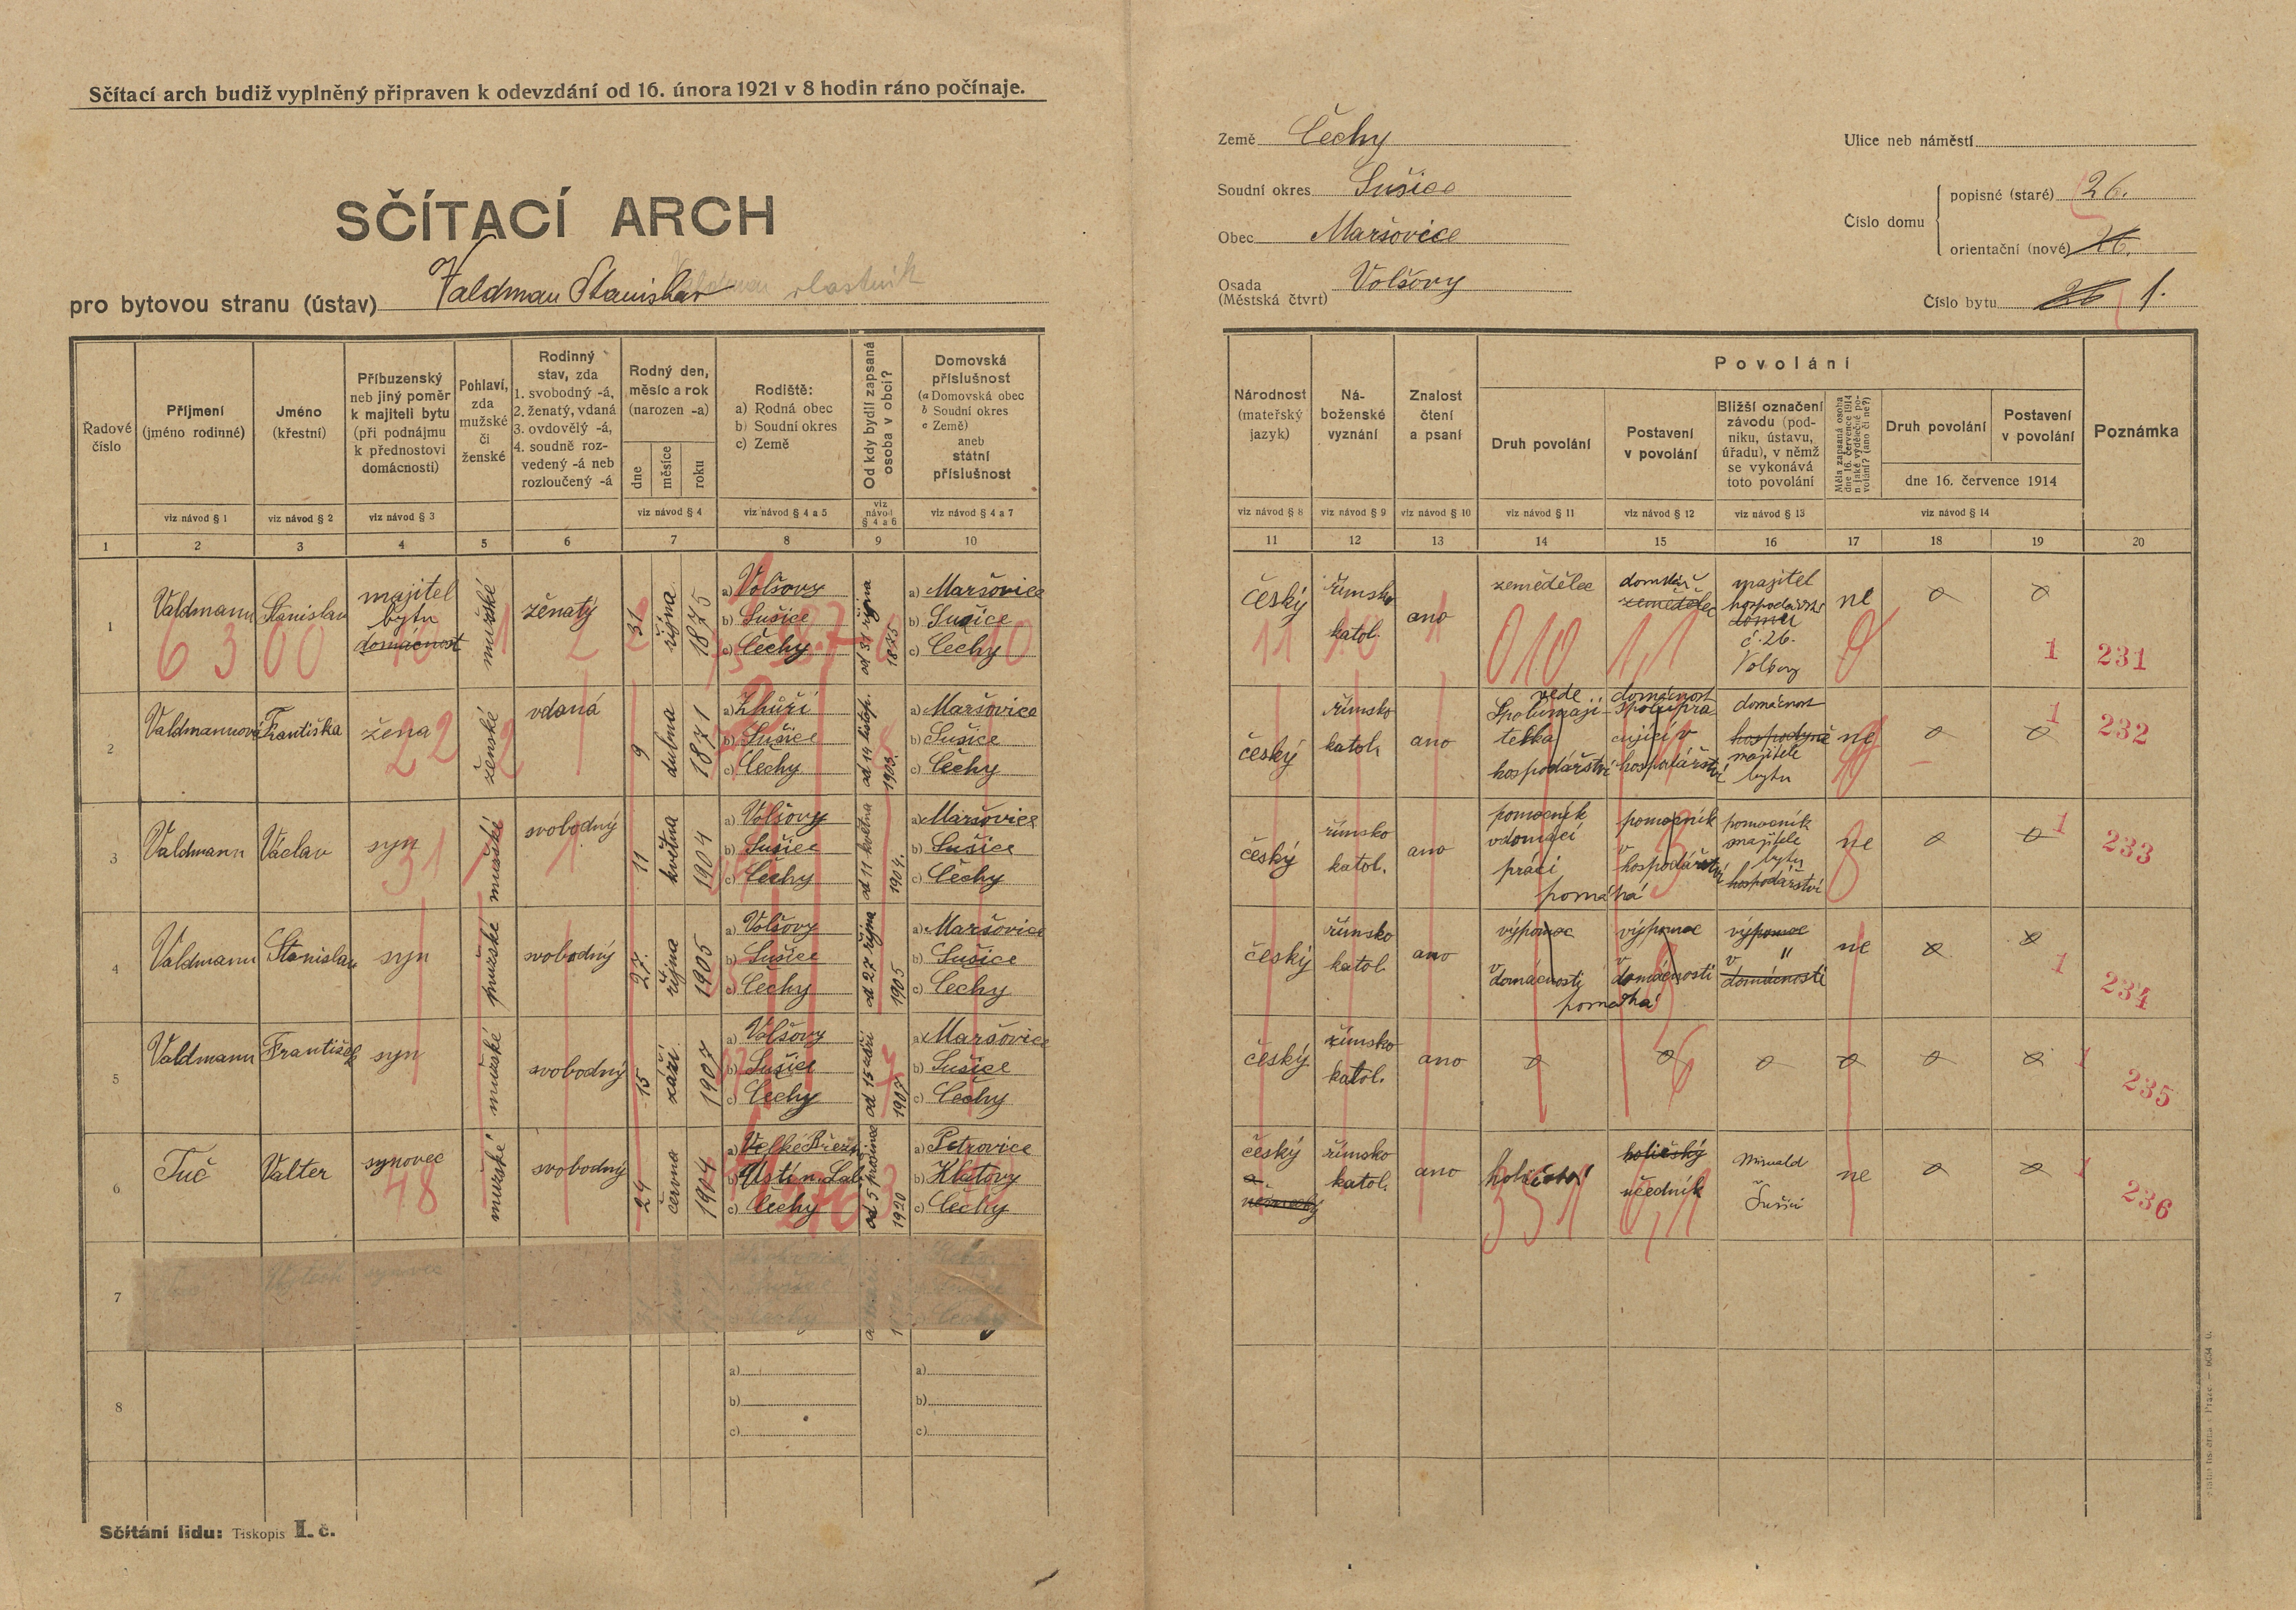 Sčítací arch budiž vyplněný připraven k odevzdání od 16. února 1921 v 8 hodin ráno počínaje.
SČÍTACÍ ARCH
pro bytovou stranu (ústav) Valdman Stanislav vlastník
Země Čechy
Soudní okres Sušice
Obec Maršovice
Osada
(Městská čtvrt) Volšovy
Ulice neb náměstí
Číslo domu
popisné (staré) 26.
orientační (nové) 26.
Číslo bytu 26 1.
Řadové číslo
Příjmení
(jméno rodinné)
viz návod § 1
Jméno
(křestní)
viz návod § 2
Příbuzenský
neb jiný poměr
k majiteli bytu
(při podnájmu
k přednostovi
domácnosti)
viz návod § 3
Pohlaví,
zda
mužské
či
ženské
Rodinný
stav, zda
1. svobodný -á,
2. ženatý, vdaná
3. ovdovělý -á,
4. soudně roz-
vedený -á neb
rozloučený -á
Rodný den,
měsíc a rok
(narozen -a)
dne
měsíce
roku
viz návod § 4
Rodiště:
a) Rodná obec
b) Soudní okres
c) Země
viz návod § 4 a 5
Od kdy bydlí zapsaná
osoba v obci?
viz
návod
§ 4 a 6
Domovská
příslušnost
(a Domovská obec
b Soudní okres
c Země)
aneb
státní
příslušnost
viz návod § 4 a 7
Národnost
(mateřský
jazyk)
viz návod § 8
Ná-
boženské
vyznání
viz návod § 9
Znalost
čtení
a psaní
viz návod § 10
Povolání
Druh povolání
viz návod § 11
Postavení
v povolání
viz návod § 12
Bližší označení
závodu (pod-
niku, ústavu,
úřadu), v němž
se vykonává
toto povolání
viz návod § 13
Měla zapsaná osoba
dne 16. července 1914
nějaké výdělečné po-
volání? (ano či ne?)
Druh povolání
Postavení
v povolání
dne 16. července 1914
viz návod § 14
Poznámka
1 2 3 4 5 6 7 8 9 10 11 12 13 14 15 16 17 18 19 20
1
Valdmann
Stanislav
majitel
bytu
domácnost
mužské
ženatý
31 října 1875
a) Volšovy
b) Sušice
c) Čechy
od 31 října
1875
a) Maršovice
b) Sušice
c) Čechy
český
římsko
katol.
ano
zemědělec
domkář
zemědělec
majitel
hospodářství
domu
č. 26.
Volšovy
ne
6300
2
11
10
010
1
231
2
Valdmannová
Františka
žena
ženské
vdaná
9 dubna 1871
a) Zhůří
b) Sušice
c) Čechy
od 14 listop.
1903.
a) Maršovice
b) Sušice
c) Čechy
český
římsko
katol.
ano
vede domácnost
Spolumaji-
telka
hospodářství
Spolupra-
cující v
hospodářství
domácnost
hospodyně
majitele
bytu
ne
22
2
1
232
3
Valdmann
Václav
syn
mužské
svobodný
11 května 1904
a) Volšovy
b) Sušice
c) Čechy
od 11 května
1904.
a) Maršovice
b) Sušice
c) Čechy
český
římsko
katol.
ano
pomocník
v domácí
práci
pomáhá
pomocník
v
hospodářství
pomocník
majitele
bytu
hospodářství
ne
31
1
233
4
Valdmann
Stanislav
syn
mužské
svobodný
27. října 1905
a) Volšovy
b) Sušice
c) Čechy
od 27 října
1905
a) Maršovice
b) Sušice
c) Čechy
český
římsko
katol.
ano
výpomoc
v
domácnosti
pomáhá
výpomoc
v
domácnosti
výpomoc
v "
domácnosti
ne
1
234
5
Valdmann
František
syn
mužské
svobodný
15 září 1907
a) Volšovy
b) Sušice
c) Čechy
od 15 září
1907
a) Maršovice
b) Sušice
c) Čechy
český
římsko
katol.
ano
1
235
6
Tuč
Valter
synovec
mužské
svobodný
24 června 1904
a) Velké Březno
b) Ústí n. Lab.
c) Čechy
od 5 prosince
1920
a) Petrovice
b) Klatovy
c) Čechy
český
a
německý
římsko
katol.
ano
holičství
holičský
učedník
Sušici
ne
48
351
1
236
7
synovec
Čechy
8
a)
b)
c)
a)
b)
c)
Sčítání lidu: Tiskopis II. č.